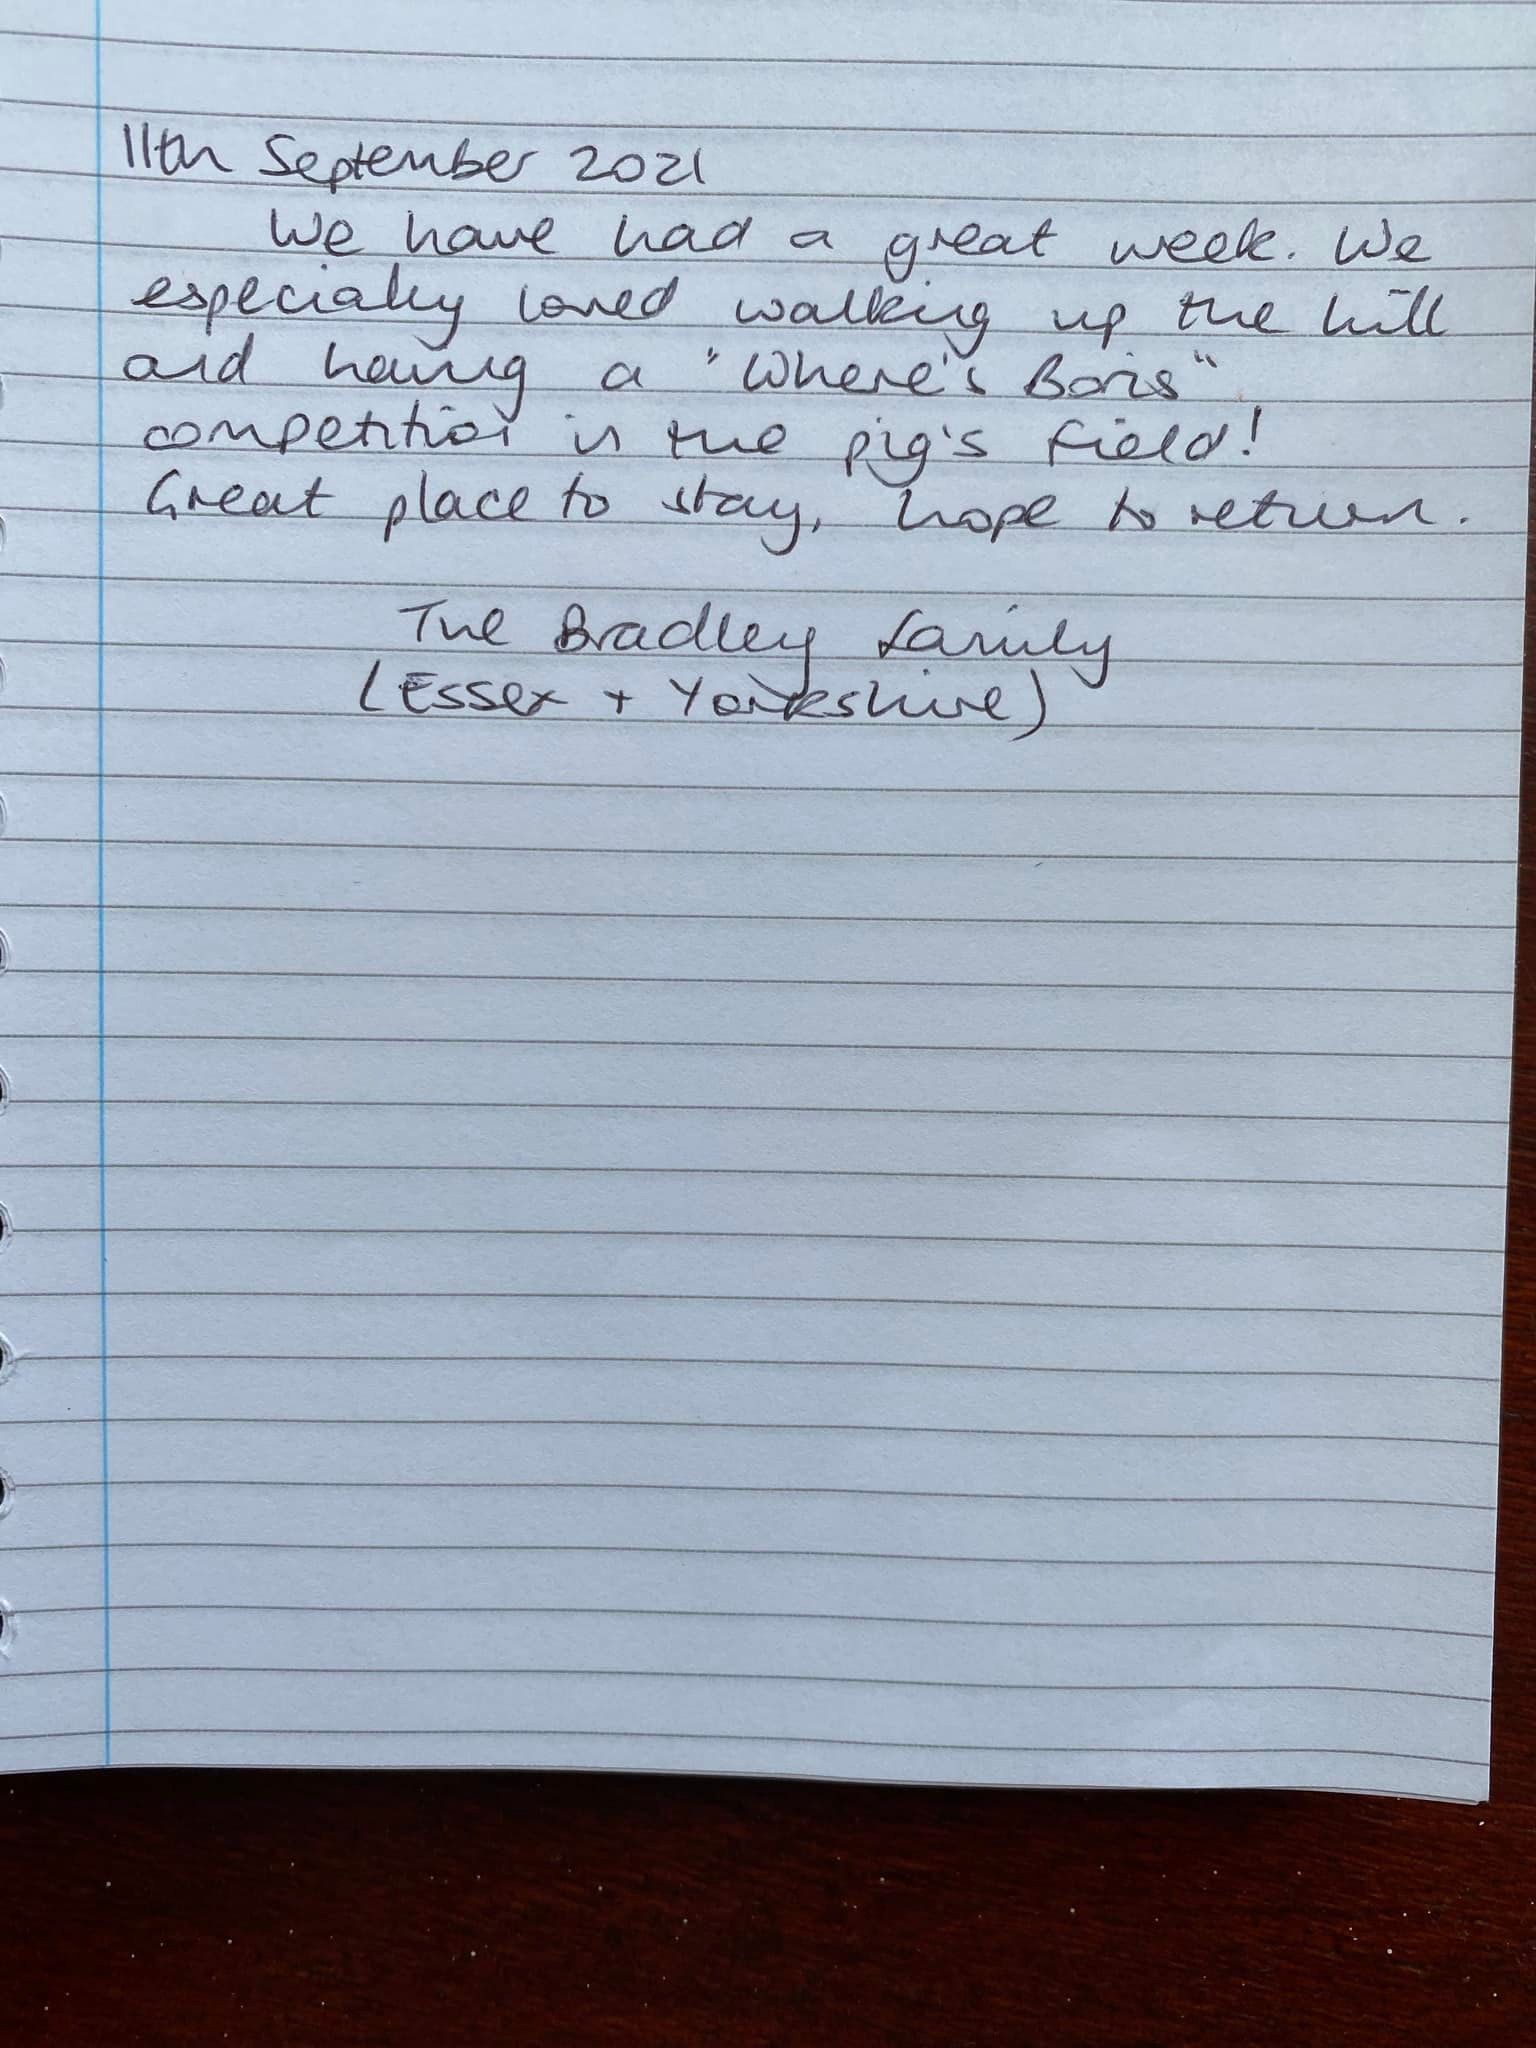 11th September 2021
We have had a great week. We
especially loved walking up the hill
and having a "Where's Boris"
competition in the pig's field!
Great place to stay, hope to return.
The Bradley family
(Essex + Yorkshire)